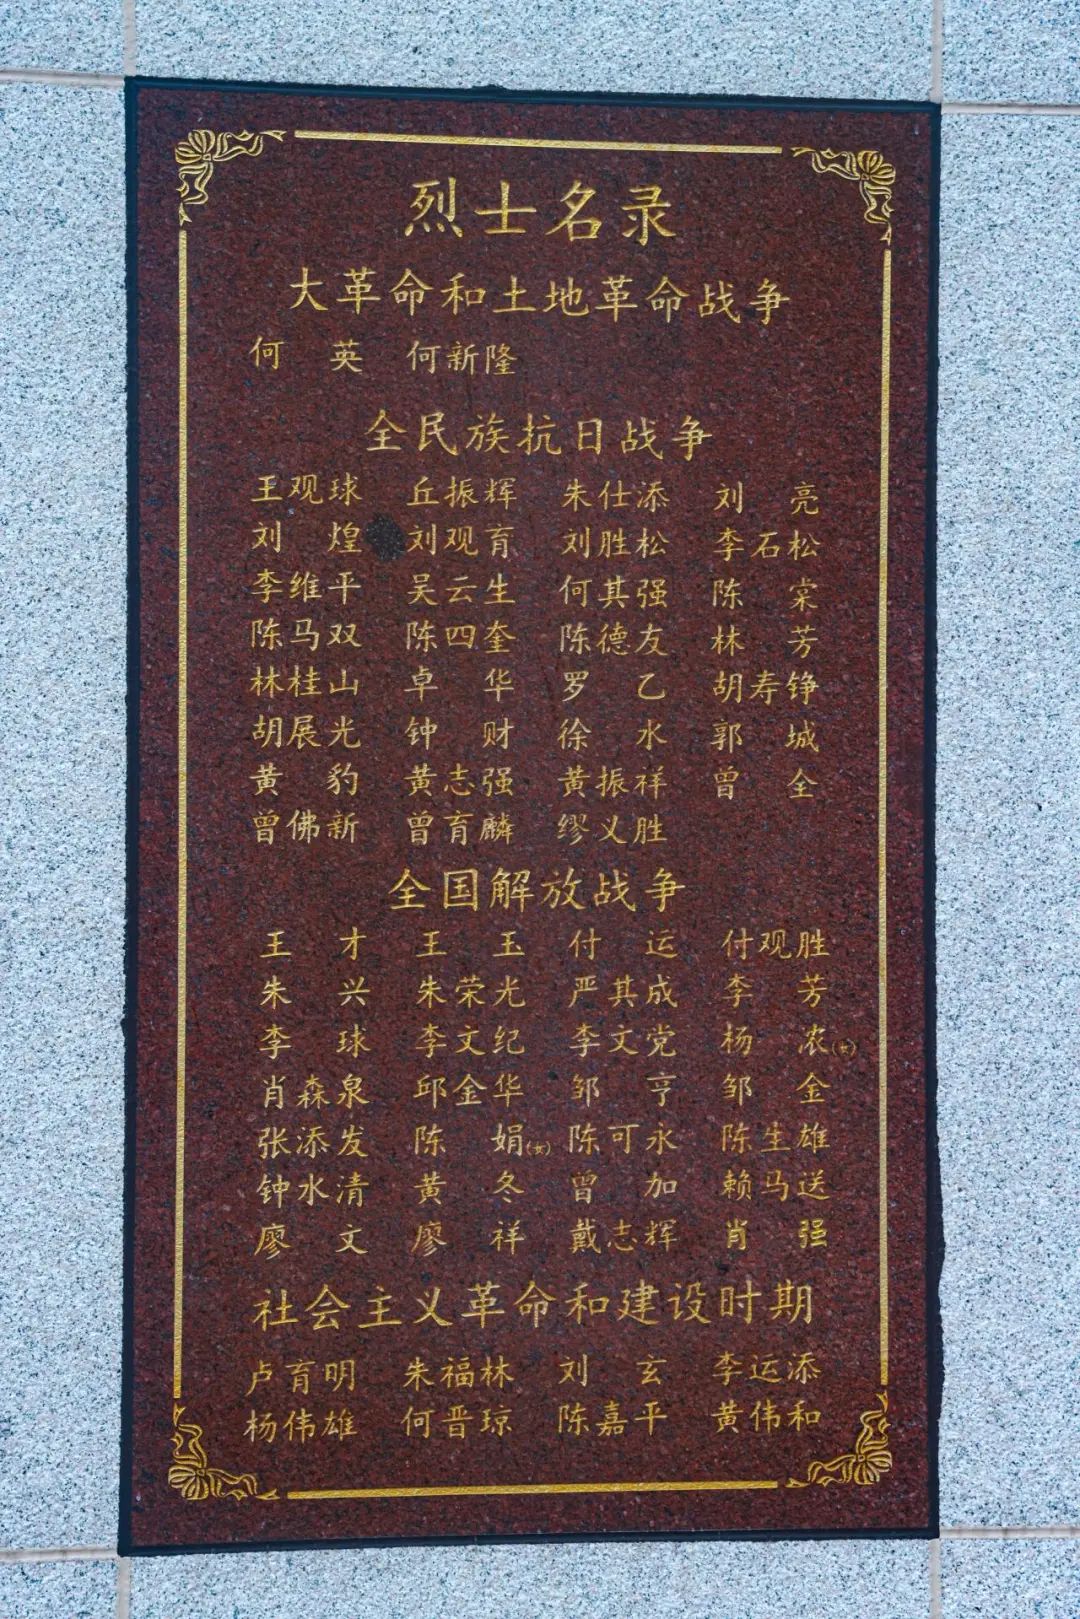 烈士名录
大革命和土地革命战争
何英 何新隆
全民族抗日战争
王观球 丘振辉 朱仕添 刘亮
刘煌 刘观育 刘胜松 李石松
李维平 吴云生 何其强 陈棠
陈马双 陈四奎 陈德友 林芳
林桂山 卓华 罗乙 胡寿铮
胡展光 钟财 徐水 郭城
黄豹 黄志强 黄振祥 曾全
曾佛新 曾育麟 缪义胜
全国解放战争
王才 王玉 付运 付观胜
朱兴 朱荣光 严其成 李芳
李球 李文纪 李文党 杨浓(女)
肖森泉 邱金华 邹亨 邹金
张添发 陈娟(女) 陈可永 陈生雄
钟水清 黄冬 曾加 赖马送
廖文 廖祥 戴志辉 肖强
社会主义革命和建设时期
卢育明 朱福林 刘玄 李运添
杨伟雄 何晋琼 陈嘉平 黄伟和